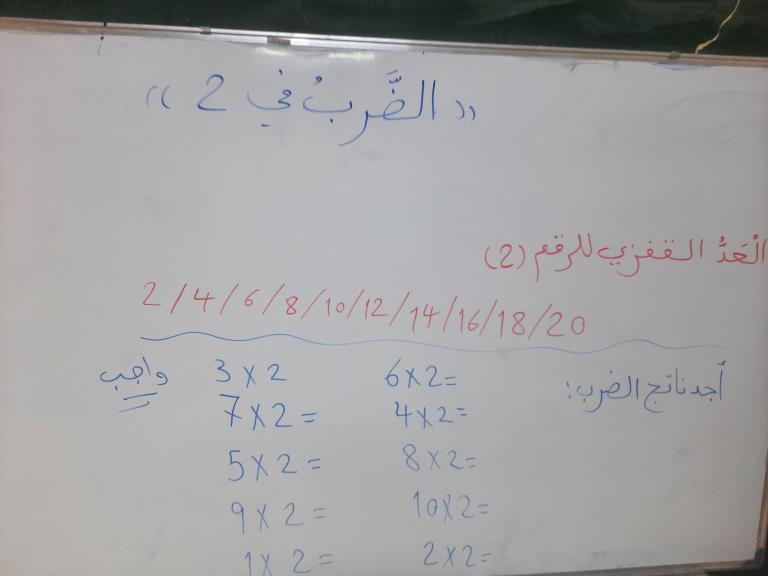 « الضَّربُ في 2 »
الْعَدُّ القفزي للرقم (2)
2 / 4 / 6 / 8 / 10 / 12 / 14 / 16 / 18 / 20
أجد ناتج الضرب:
واجب
6 x 2 =
3 x 2
4 x 2 =
7 x 2 =
8 x 2 =
5 x 2 =
10 x 2 =
9 x 2 =
2 x 2 =
1 x 2 =